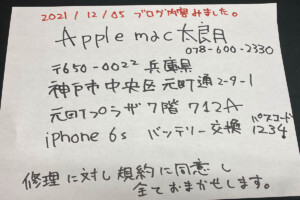 2021/12/05 ブログ内容みました。
Apple mac太郎
078-600-2330
〒650-0022 兵庫県
神戸市中央区元町通2-9-1
元町プラザ7階 712A
パスコード
iPhone 6s バッテリー交換 1234
修理に対し規約に同意し
全ておまかせします。